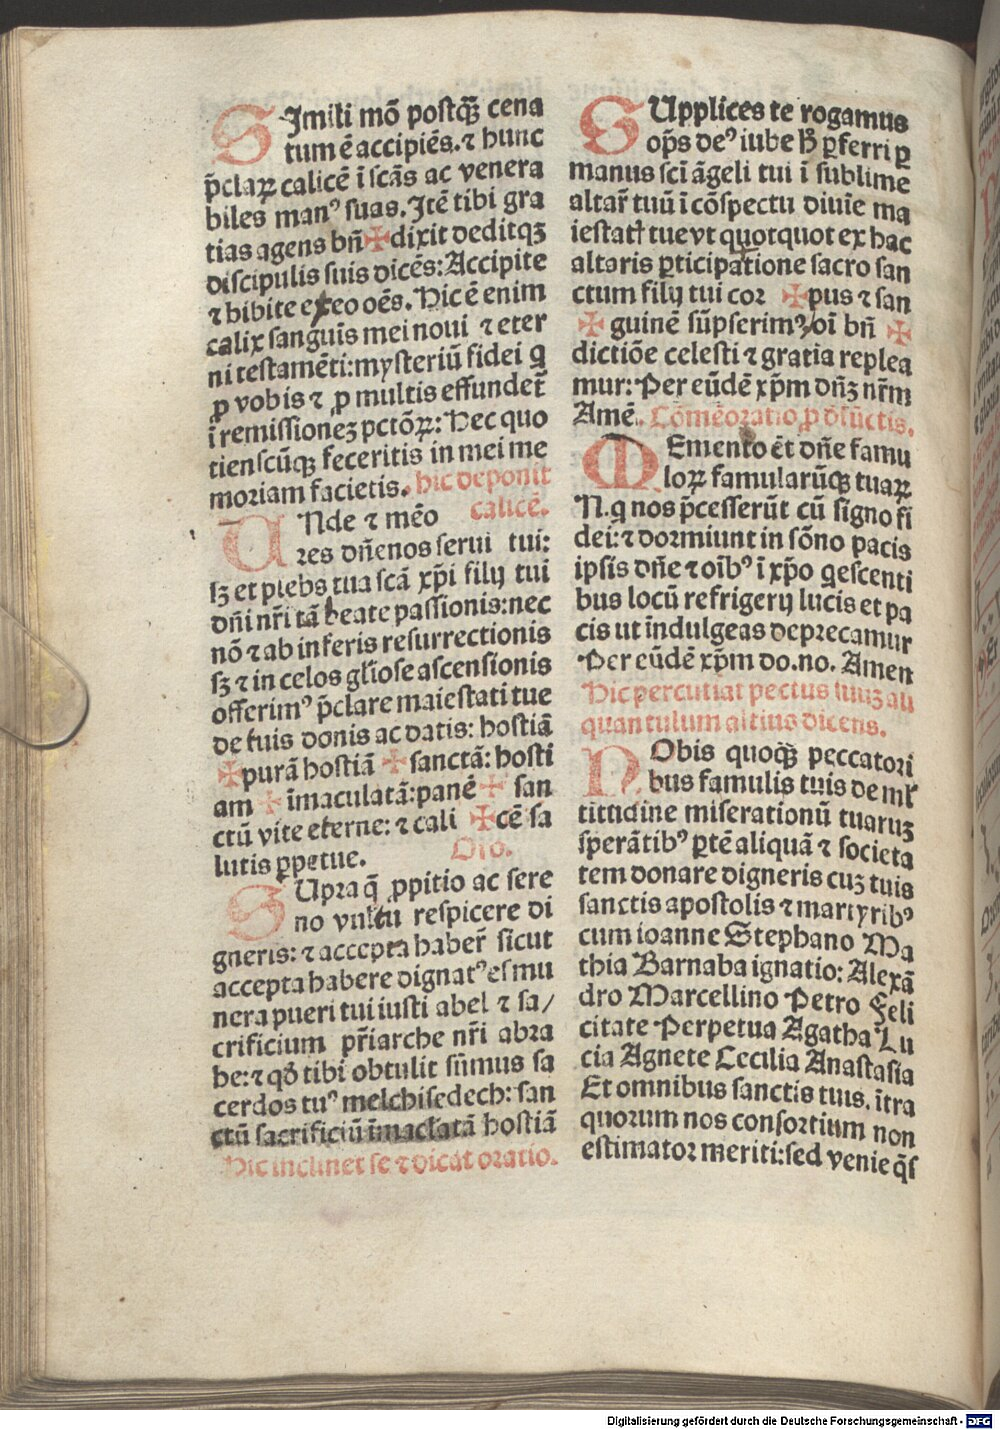 Simili mō postq̄ȝ cena
tum ē accipiēs. ⁊ hunc
p̄claꝝ calicē ī scās ac venera
biles manꝰ suas. Itē tibi gra
tias agens bn̄ ✠ dixit deditqȝ
discipulis suis dicēs: Accipite
⁊ bibite ex eo oēs. Hic ē enim
calix sanguīs mei noui ⁊ eter
ni testamēti: mysteriū fidei q
ꝓ vobis ⁊ ꝓ multis effundet̄
ī remissionez pctōꝝ: Hec quo
tienscūqȝ feceritis in mei me
moriam facietis. hic deponit
calicē.
UNde ⁊ mēo
res dn̄e nos serui tui:
sȝ et plebs tua scā xp̄i filij tui
dn̄i nr̄i tā beate passionis: nec
nō ⁊ ab inferis resurrectionis
sȝ ⁊ in celos gl̄iose ascensionis
offerimꝰ p̄clare maiestati tue
de tuis donis ac datis: hostiā
✠ purā hostiā ✠ sanctā: hosti
am ✠ īmaculatā: panē ✠ san
ctū vite eterne: ⁊ cali ✠ cē sa
lutis ꝑpetue. Oro.
SUpra q̄ ꝓpitio ac sere
no vultu respicere di
gneris: ⁊ accepta haber̄ sicut
accepta habere dignatꝰ es mu
nera pueri tui iusti abel ⁊ sa/
crificium pr̄iarche nr̄i abra
he: ⁊ qd̄ tibi obtulit sūmus sa
cerdos tuꝰ melchisedech: san
ctū sacrificiū īmaclatā hostiā
Hic inclinet se ⁊ dicat oratio.
SUpplices te rogamus
op̄s deꝰ iube h̄ ꝑferri ꝑ
manus sc̄i āgeli tui ī sublime
altar̄ tuū ī cōspectu diuīe ma
iestatꝭ tue vt quotquot ex hac
altaris ꝑticipatione sacro san
ctum filij tui cor ✠ pus ⁊ san
✠ guinē sūpserimꝰ/ oī bn̄ ✠
dictiōe celesti ⁊ gratia replea
mur: Per eūdē xp̄m dn̄ȝ nr̄m
Amē. Cōmēoratio ꝓ dfūctis.
MEmento ēt dn̄e famu
loꝝ famularūqȝ tuaꝝ
N. q nos p̄cesserūt cū signo fi
dei: ⁊ dormiunt in sōno pacis
ipsis dn̄e ⁊ oībꝰ ī xp̄o qescenti
bus locū refrigerij lucis et pa
cis ut īndulgeas deprecamur
Per eūdē xp̄m do. no. Amen
Hic percutiat pectus suuȝ ali
quantulum altius dicens.
NObis quoqȝ peccatori
bus famulis tuis de ml̄
titudine miserationū tuaruȝ
sperātibꝰ ꝑtē aliquā ⁊ societa
tem donare digneris cuȝ tuis
sanctis apostolis ⁊ martyribꝰ
cum ioanne Stephano Ma
thia Barnaba ignatio: Alexā
dro Marcellino Petro Feli
citate Perpetua Agatha Lu
cia Agnete Cecilia Anastasia
Et omnibus sanctis tuis. ītra
quorum nos consortium non
estimator meriti: sed venie q̄s
Digitalisierung gefördert durch die Deutsche Forschungsgemeinschaft - DFG